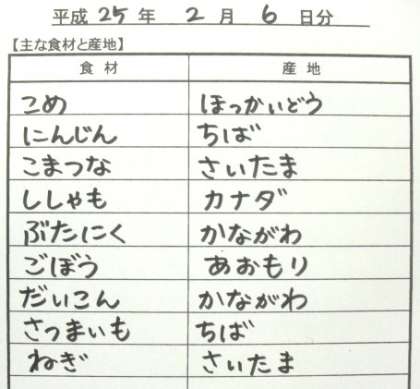 平成 25 年 2 月 6 日分
【主な食材と産地】
食材 産地
こめ ほっかいどう
にんじん ちば
こまつな さいたま
ししゃも カナダ
ぶたにく かながわ
ごぼう あおもり
だいこん かながわ
さつまいも ちば
ねぎ さいたま